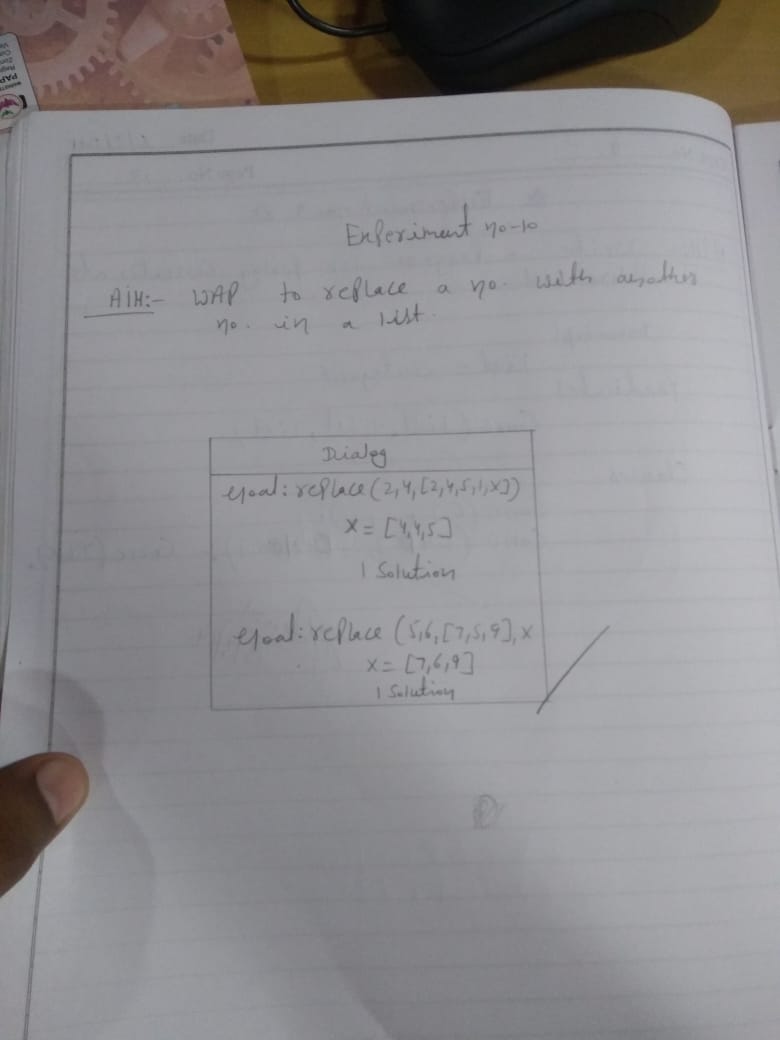 Experiment no-10
AIM:- WAP to replace a no. with another
no. in a list.
Dialog
Goal: replace (2,4,[2,4,5,1,X])
X = [4,4,5]
1 Solution
Goal: replace (5,6,[7,5,9],X
X = [7,6,9]
1 Solution